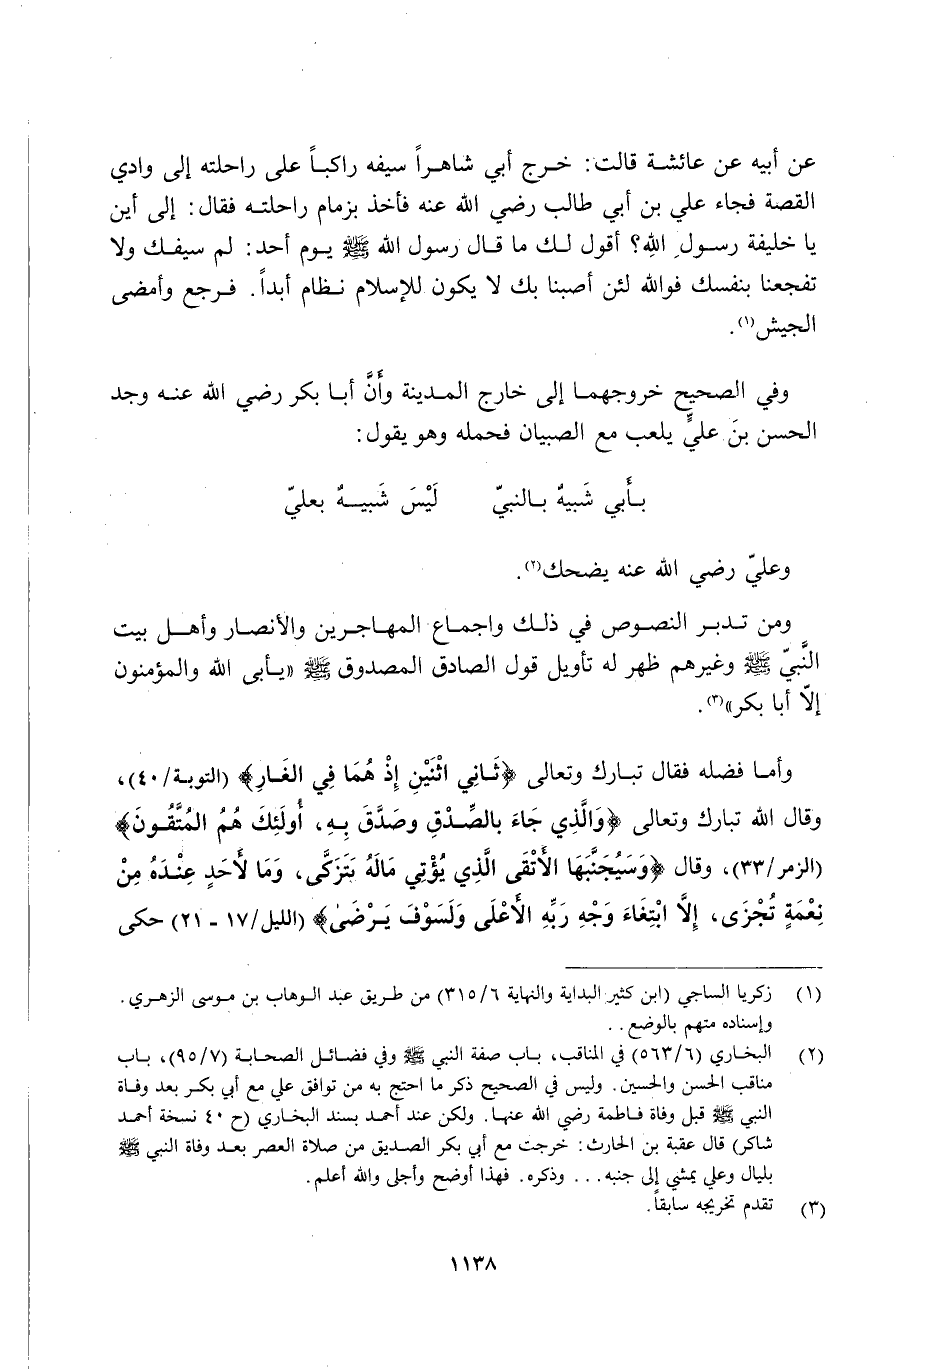 عن أبيه عن عائشة قالت: خرج أبي شاهراً سيفه راكباً على راحلته إلى وادي
القصة فجاء علي بن أبي طالب رضي الله عنه فأخذ بزمام راحلته فقال: إلى أين
يا خليفة رسولِ اللهِ؟ أقول لك ما قال رسول الله ﷺ يوم أحد: لم سيفك ولا
تفجعنا بنفسك فوالله لئن أصبنا بك لا يكون للإسلام نظام أبداً. فرجع وأمضى
الجيش(١).
وفي الصحيح خروجهما إلى خارج المدينة وأَنَّ أبا بكر رضي الله عنه وجد
الحسن بنَ عليٍّ يلعب مع الصبيان فحمله وهو يقول:
بأَبي شَبيهٌ بالنبيّ لَيْسَ شَبيهٌ بعليّ
وعليّ رضي الله عنه يضحك(٢).
ومن تدبر النصوص في ذلك واجماع المهاجرين والأنصار وأهل بيت
النَّبيّ ﷺ وغيرهم ظهر له تأويل قول الصادق المصدوق ﷺ «يأبى الله والمؤمنون
إلاّ أبا بكر»(٣).
وأما فضله فقال تبارك وتعالى ﴿ثَانِي اثْنَيْنِ إِذْ هُمَا فِي الغَارِ﴾ (التوبة/٤٠)،
وقال الله تبارك وتعالى ﴿وَالَّذِي جَاءَ بالصِّدْقِ وصَدَّقَ بِهِ، أُولَئِكَ هُمُ المُتَّقُونَ﴾
(الزمر/٣٣)، وقال ﴿وَسَيُجَنَّبُهَا الأَتْقَى الَّذِي يُؤْتِي مَالَهُ يَتَزَكَّى، وَمَا لأَحَدٍ عِنْدَهُ مِنْ
نِعْمَةٍ تُجْزَى، إِلَّا ابْتِغَاءَ وَجْهِ رَبِّهِ الأَعْلَى وَلَسَوْفَ يَرْضَىٰ﴾ (الليل/١٧ - ٢١) حكى
(١) زكريا الساجي (ابن كثير البداية والنهاية ٣١٥/٦) من طريق عبد الوهاب بن موسى الزهري.
وإسناده متهم بالوضع..
(٢) البخاري (٥٦٣/٦) في المناقب، باب صفة النبي ﷺ وفي فضائل الصحابة (٩٥/٧)، باب
مناقب الحسن والحسين. وليس في الصحيح ذكر ما احتج به من توافق علي مع أبي بكر بعد وفاة
النبي ﷺ قبل وفاة فاطمة رضي الله عنها. ولكن عند أحمد بسند البخاري (ح ٤٠ نسخة أحمد
شاكر) قال عقبة بن الحارث: خرجت مع أبي بكر الصديق من صلاة العصر بعد وفاة النبي ﷺ
بليال وعلي يمشي إلى جنبه... وذكره. فهذا أوضح وأجلى والله أعلم.
(٣) تقدم تخريجه سابقاً.
١١٣٨